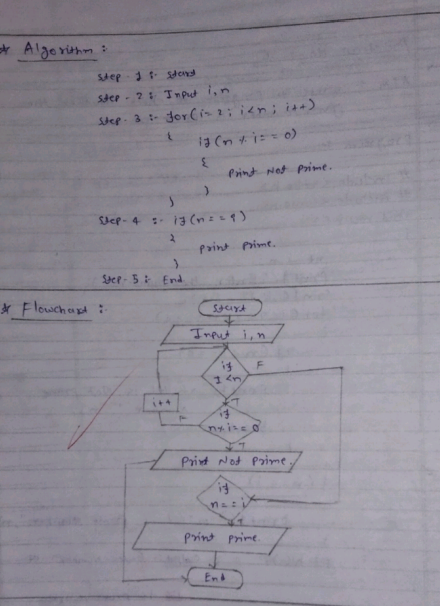 * Algorithm :
Step - 1 :- Start
Step - 2 : Input i, n
Step - 3 :- for (i=2; i<n; i++)
{ if (n % i == 0)
{
Print Not Prime.
}
}
Step - 4 :- if (n == 9)
{
Print Prime.
}
Step - 5 :- End.
* Flowchart :
Start
Input i, n
if
I < n
F
T
i++
F
if
n % i == 0
T
Print Not Prime.
if
n == i
T
Print Prime.
End